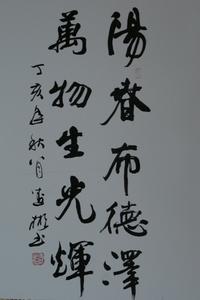 陽春布德澤
萬物生光輝
丁亥年秋八月